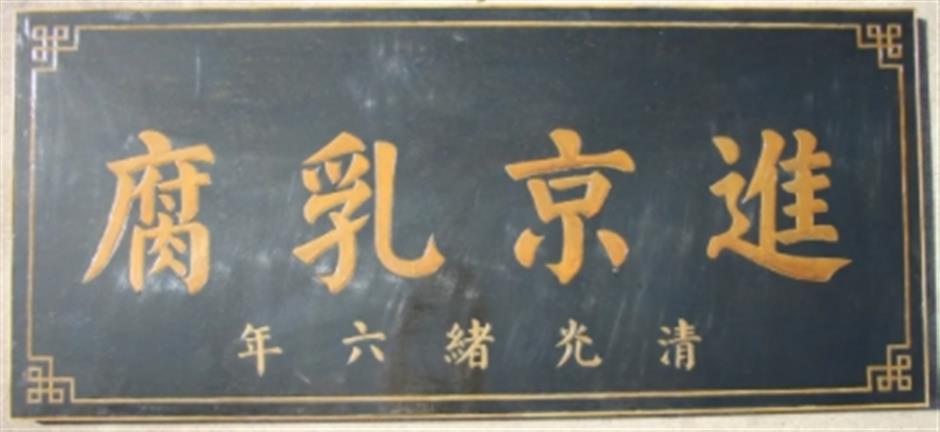 進京乳腐
清光緒六年